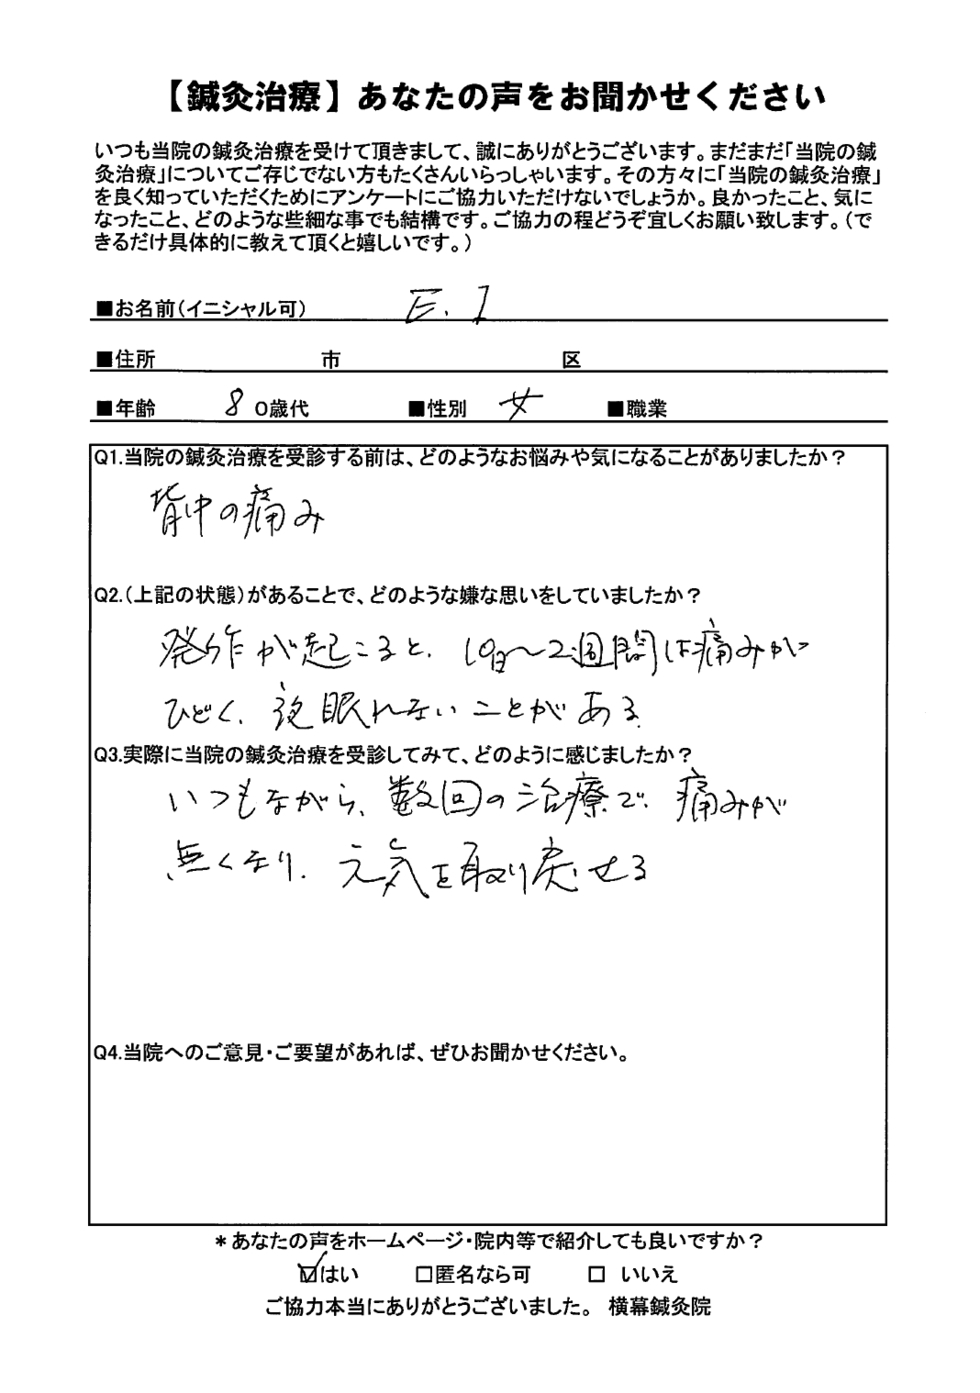 【鍼灸治療】あなたの声をお聞かせください
いつも当院の鍼灸治療を受けて頂きまして、誠にありがとうございます。まだまだ「当院の鍼
灸治療」についてご存じでない方もたくさんいらっしゃいます。その方々に「当院の鍼灸治療」
を良く知っていただくためにアンケートにご協力いただけないでしょうか。良かったこと、気に
なったこと、どのような些細な事でも結構です。ご協力の程どうぞ宜しくお願い致します。（で
きるだけ具体的に教えて頂くと嬉しいです。）
■お名前（イニシャル可） E.I
■住所 市 区
■年齢 8 0歳代 ■性別 女 ■職業
Q1.当院の鍼灸治療を受診する前は、どのようなお悩みや気になることがありましたか？
背中の痛み
Q2.（上記の状態）があることで、どのような嫌な思いをしていましたか？
発作が起こると、10日～2週間は痛みが
ひどく、夜眠れないことがある。
Q3.実際に当院の鍼灸治療を受診してみて、どのように感じましたか？
いつもながら、数回の治療で、痛みが
無くなり、元気を取り戻せる
Q4.当院へのご意見・ご要望があれば、ぜひお聞かせください。
＊あなたの声をホームページ・院内等で紹介しても良いですか？
☑はい □匿名なら可 □ いいえ
ご協力本当にありがとうございました。 横幕鍼灸院